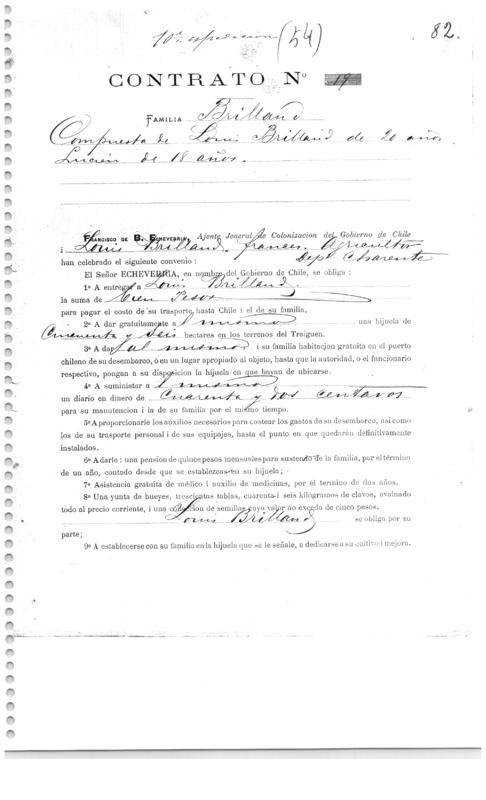 10ª espedicion (54) 82.
CONTRATO Nº 19
FAMILIA Brilland
Compuesta de Louis Brilland de 20 años.
Lucien de 18 años.
FRANCISCO DE B. ECHEVERRIA, Ajente Jeneral de Colonizacion del Gobierno de Chile
i Louis Brilland, frances. Agricultor
Dept. Charente
han celebrado el siguiente convenio :
El Señor ECHEVERRIA, en nombre del Gobierno de Chile, se obliga :
1º A entregar a Louis Brilland.
la suma de Cien Pesos
para pagar el costo de su trasporte hasta Chile i el de su familia,
2º A dar gratuitamente a l mismo una hijuela de
Cincuenta y seis hectares en los terrenos del Traiguen.
3º A dar al mismo i su familia habitacion gratuita en el puerto
chileno de su desembarco, ó en un lugar apropiado al objeto, hasta que la autoridad, o el funcionario
respectivo, pongan a su disposicion la hijuela en que hayan de ubicarse.
4º A suministar a l mismo
un diario en dinero de Cuarenta y dos centavos
para su manutencion i la de su familia por el mismo tiempo.
5º A proporcionarle los auxilios necesarios para costear los gastos de su desembarco, asi como
los de su trasporte personal i de sus equipajes, hasta el punto en que quedarán definitivamente
instalados.
6º A darle : una pension de quince pesos mensuales para sustento de la familia, por el término
de un año, contado desde que se establezcas en su hijuela ;
7º Asistencia gratuita de médico i auxilio de medicinas, por el termino de dos años.
8º Una yunta de bueyes, trescientas tablas, cuarenta i seis kilógramos de clavos, avaluado
todo al precio corriente, i una coleccion de semillas cuyo valor no exceda de cinco pesos.
Louis Brilland se obliga por su
parte;
9º A establecerse con su familia en la hijuela que se le señale, a dedicarse a su cultivo i mejora.